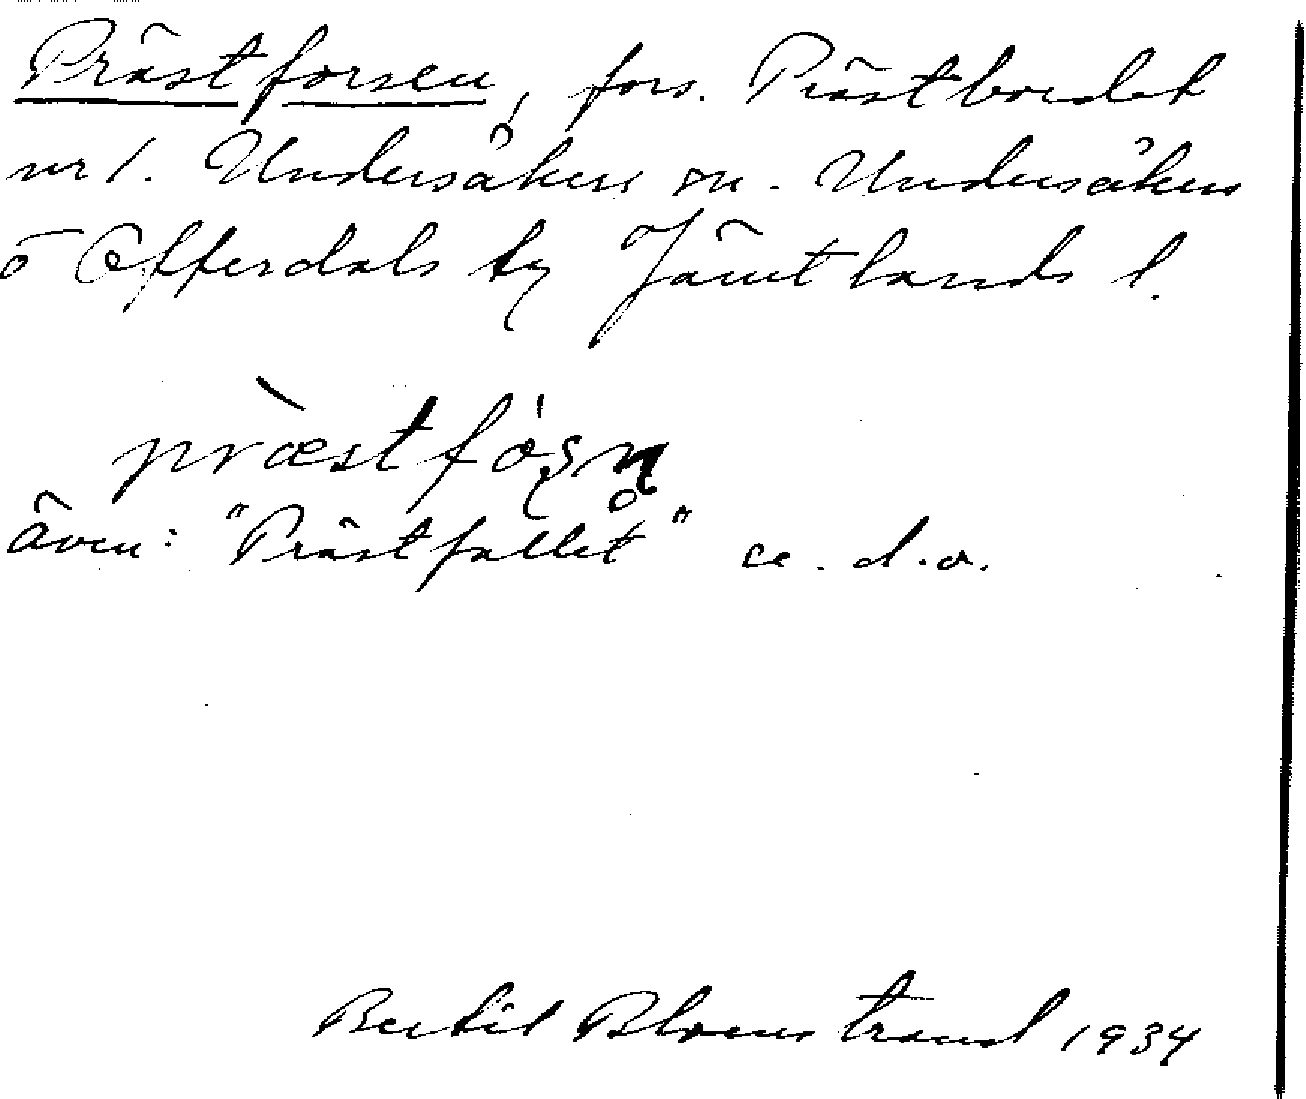 Prästforsen, fors. Prästbordet
nr 1. Undersåkers sn. Undersåkers
o Offerdals tg Jämtlands l.
præstfóṣn̥
även: "Prästfallet" d.o.
Bertil Blomstrand 1934